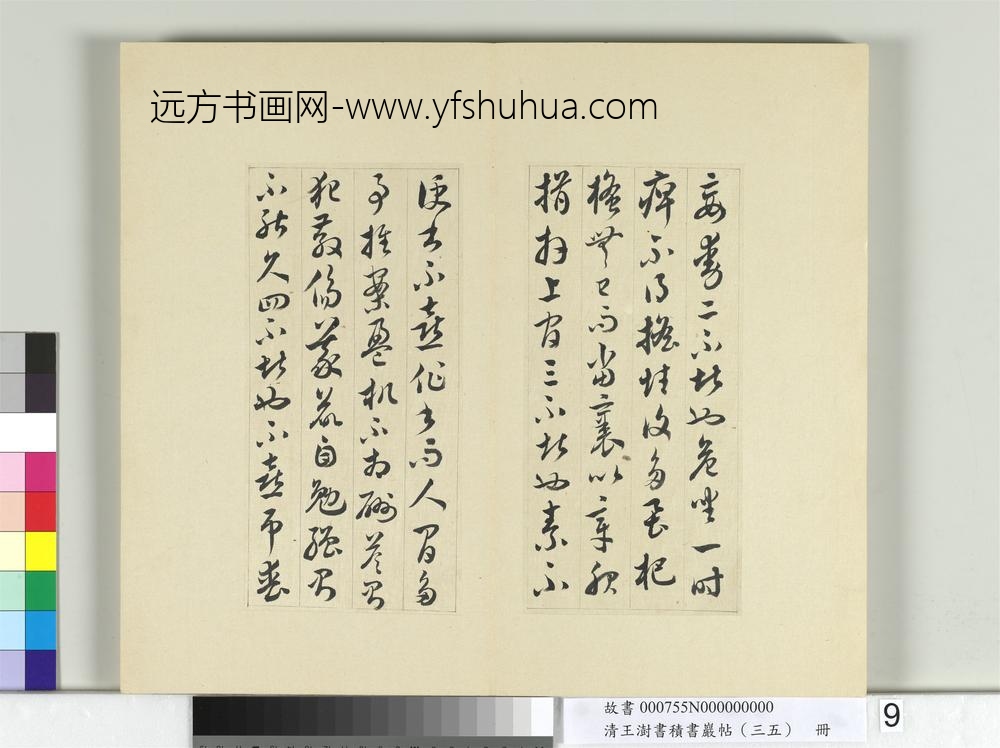 远方书画网-www.yfshuhua.com
妄動二不堪也危坐一時
痺不得搖性復多虱把
搔無已而當裹以章服
揖拜上官三不堪也素不
便書不喜作書而人間多
事堆案盈机不相酬答則
犯教傷義欲自勉強則
不能久四不堪也不喜弔喪
故書 000755N000000000
清王澍書積書巖帖（三五） 冊
9